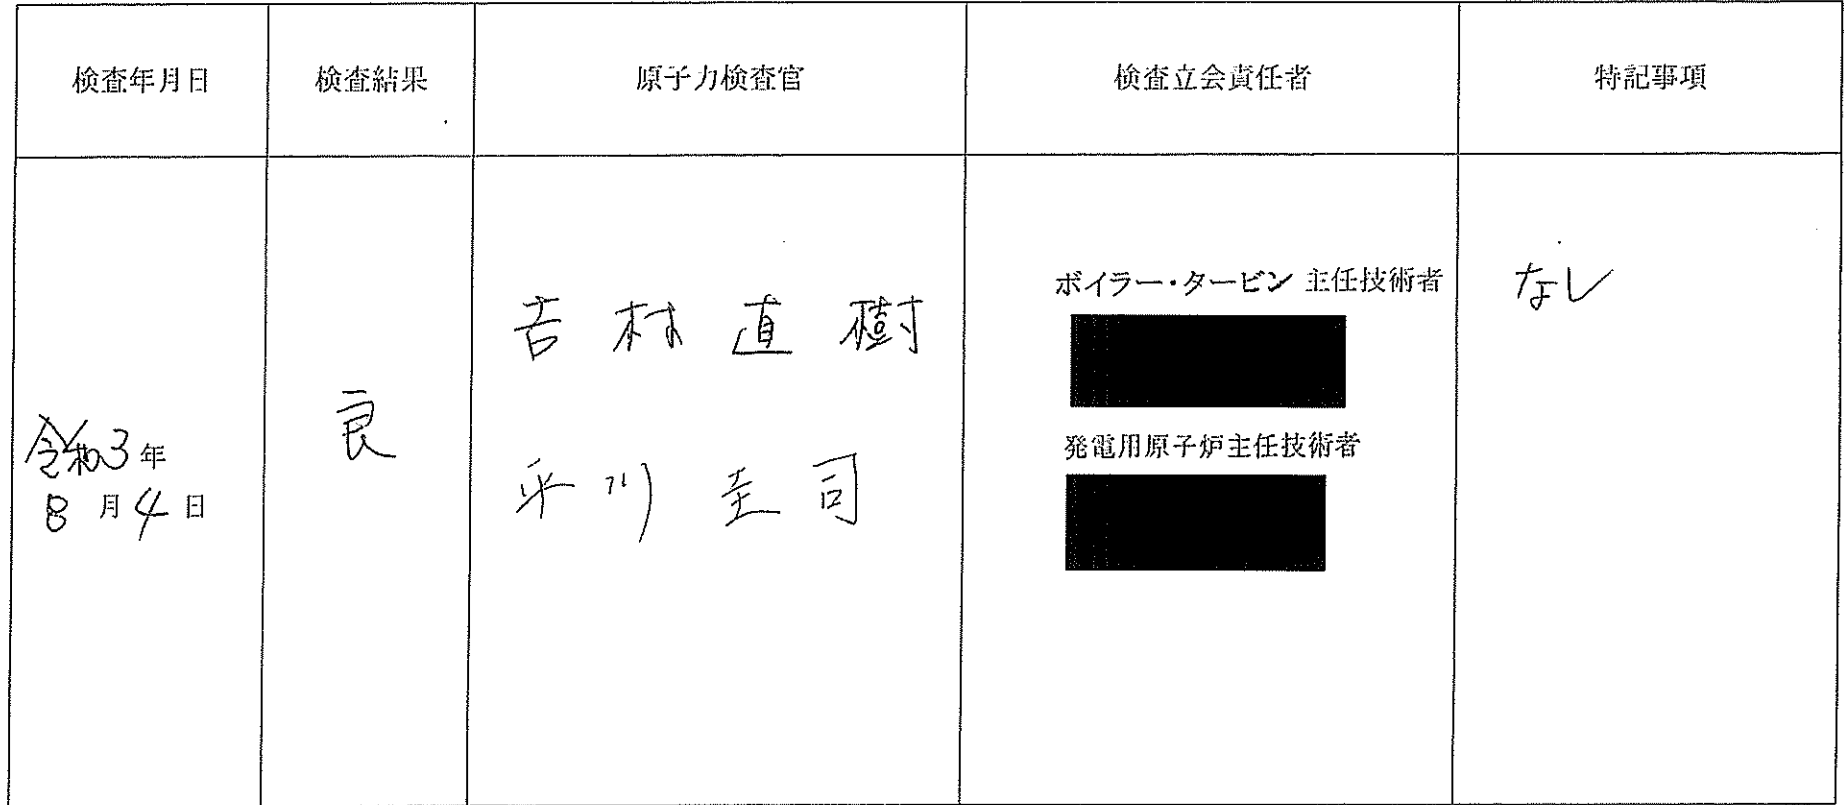 検査年月日 検査結果 原子力検査官 検査立会責任者 特記事項
令和3年
8月4日
良
吉村直樹
平川圭司
ボイラー・タービン 主任技術者
発電用原子炉主任技術者
なし